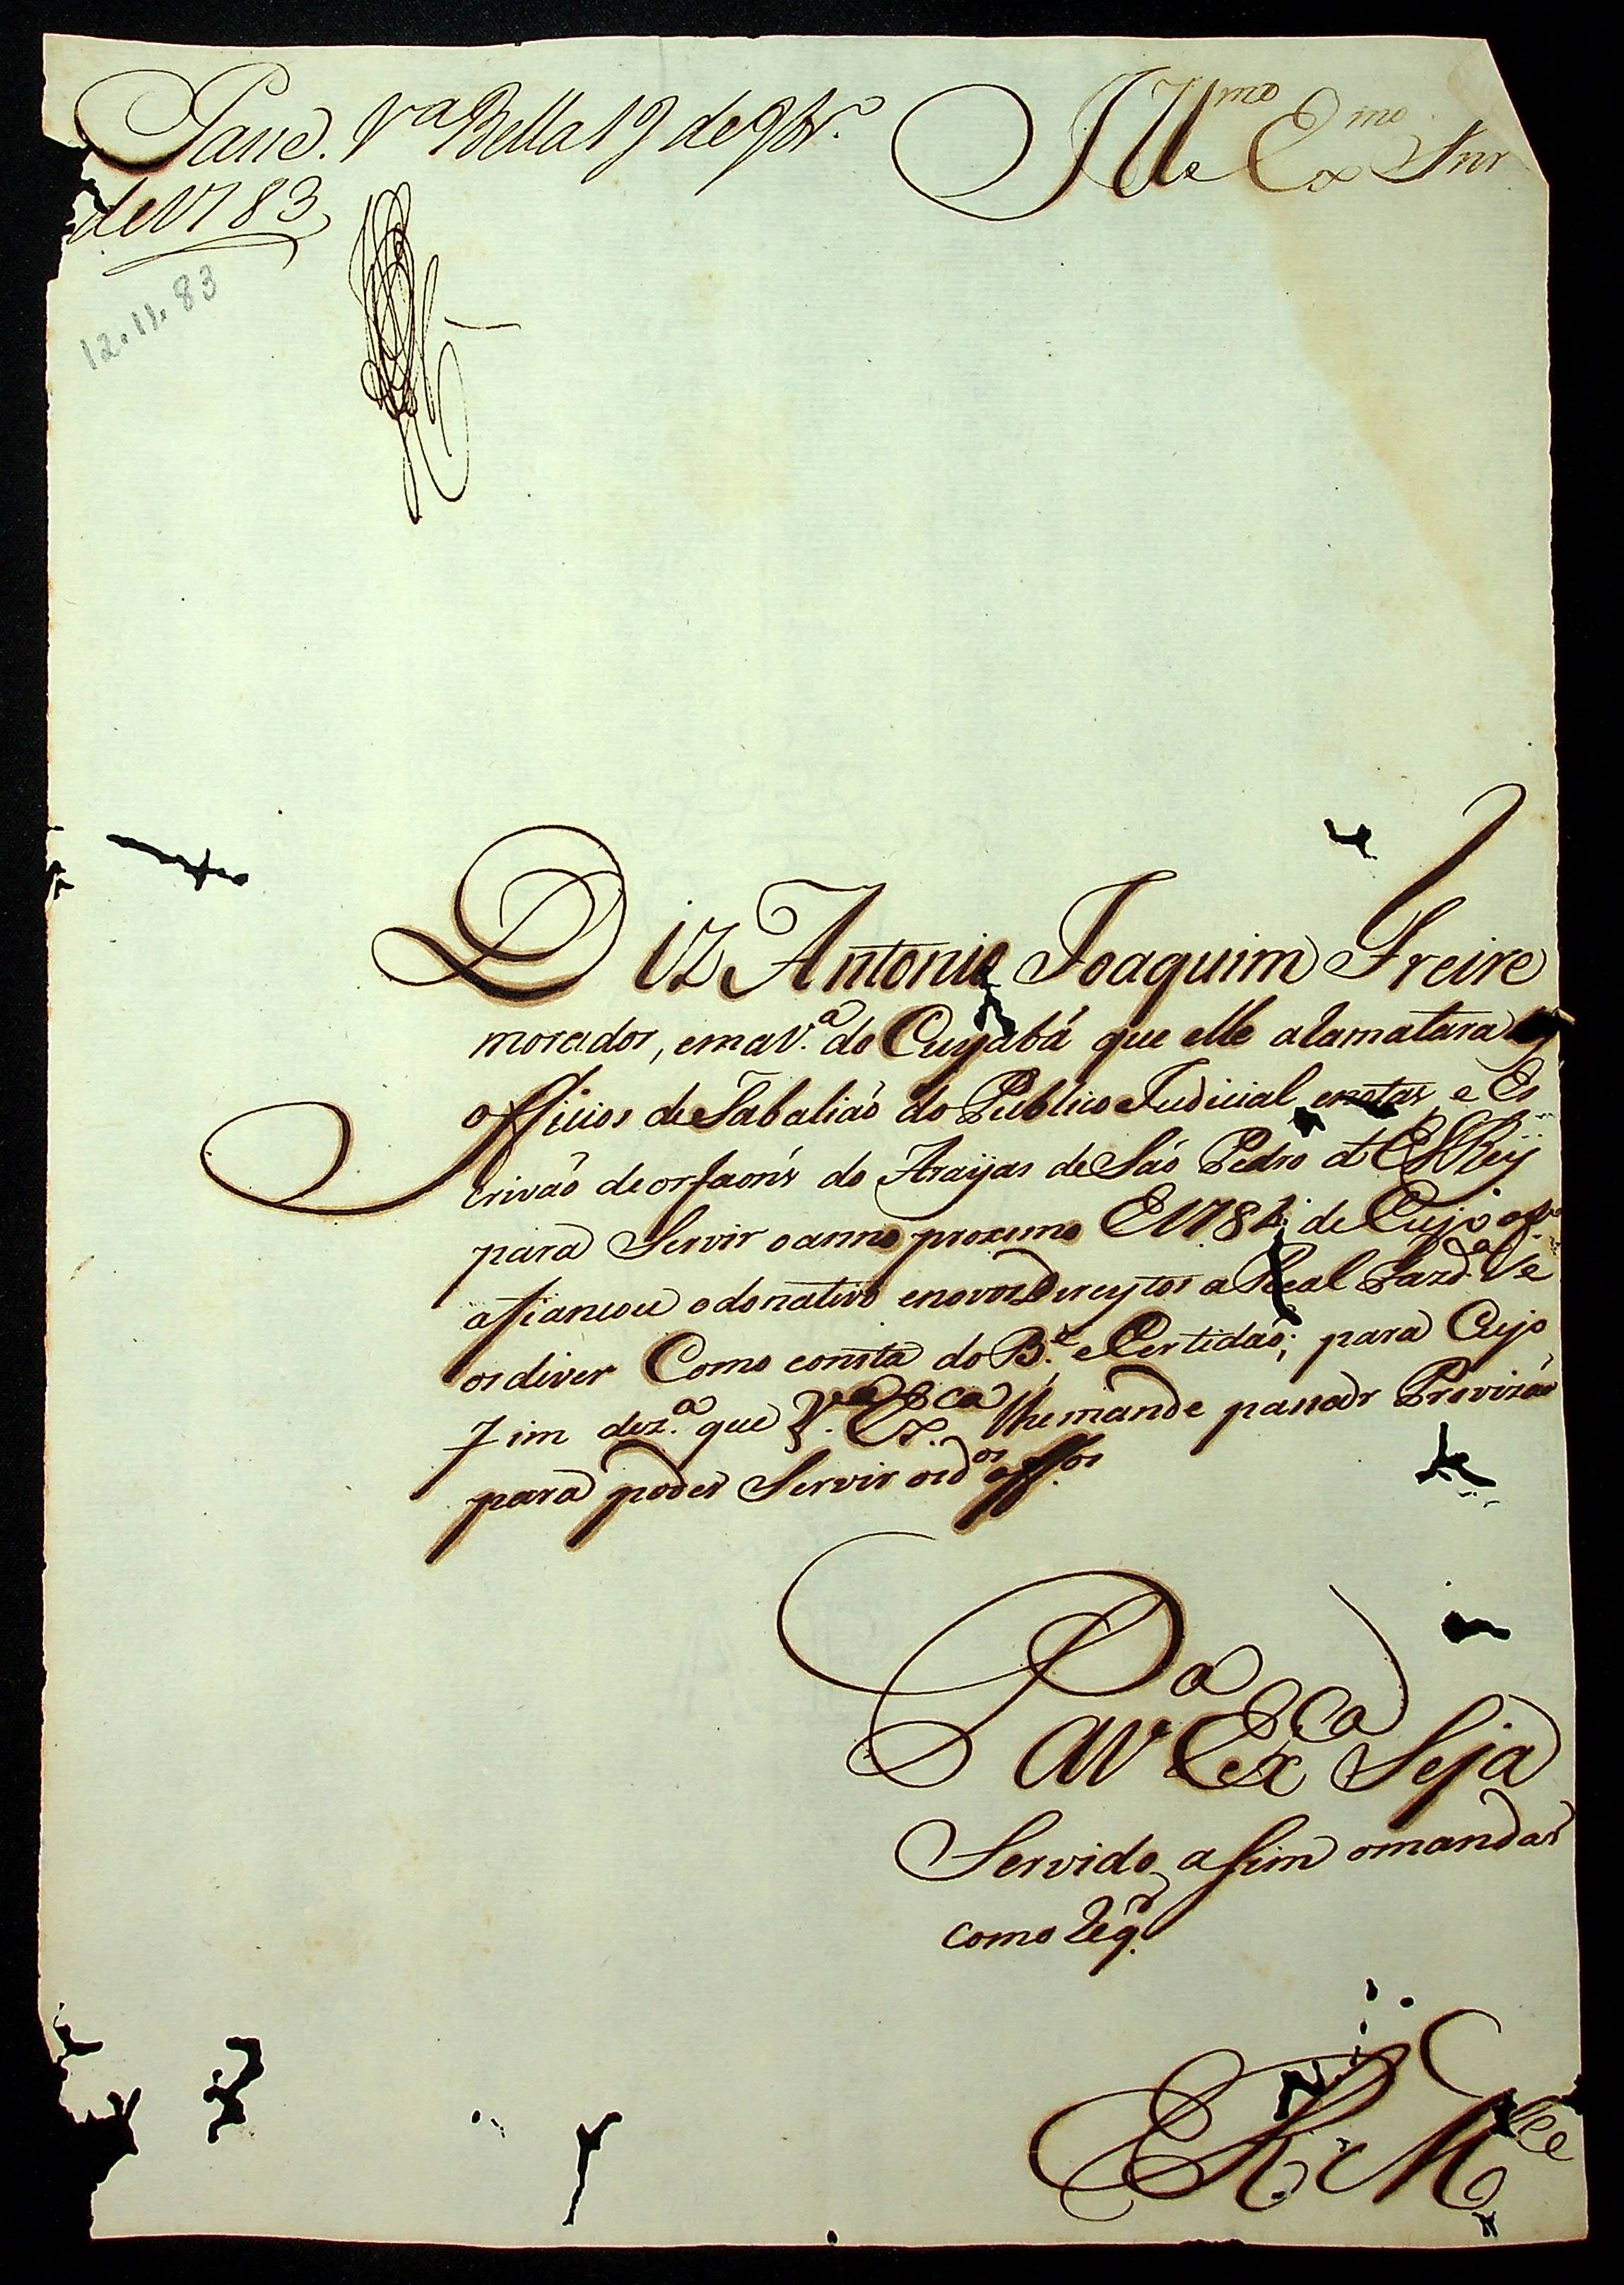 Passe. V.ª Bella 12 de 9br.º
de 1783
12.11.83
Ill.mo e Ex.mo Snr
Diz Antonio Joaquim Freire
morador, em a V.ª do Cuyabá que elle a Ramatara os
officios de Tabaliaõ do Publico Judicial e notas e Es
crivaõ de orfaons do Arayas de Saõ Pedro d El Rey
para Servir o anno proximo 1784 de Cujo
afiansou o donativo e novos Direytos a Real Fazd.ª Se
os diver Como consta do B.e e Certidaõ; para Cujo
fim dez.ª que V.ª Ex.ca lhe mande passar Provizaõ
para poder Servir os d.os off.os
P.
a V.ª Ex.ca Seja
Servido asim o mandar
como Req.r
E R M.ce